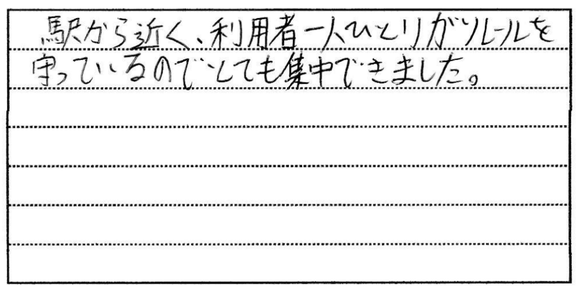 駅から近く、利用者一人ひとりがルールを
守っているのでとても集中できました。